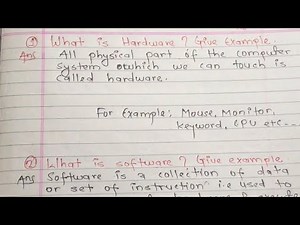 ① What is Hardware? Give Example.
Ans All physical part of the computer
system which we can touch is
called hardware.
For Example: Mouse, Monitor,
Keyword, CPU etc...
② What is software? Give example
Ans Software is a collection of data
or set of instruction i.e used to